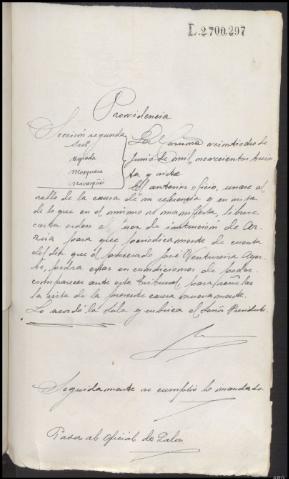 L.2700.297
Providencia
Sección segunda
Tejada
Mosquera
La Coruña veintidos de
Junio de mil novecientos trein
ta y siete
El anterior oficio, unase al
rollo de la causa de su referencia y en vista
de lo que en el mismo se manifiesta, librese
carta orden al Juez de instrucción de Ar
zúa para que periodicamente de cuenta
del dia que el procesado José Ventureira
pueda estar en condiciones de poder
comparecer ante este Tribunal para señalar
la vista de la presente causa nuevamente.
Lo acordó la Sala y rubrica el Señor Presidente
Seguidamente se cumplió lo mandado
Pasa al Oficial de Sala